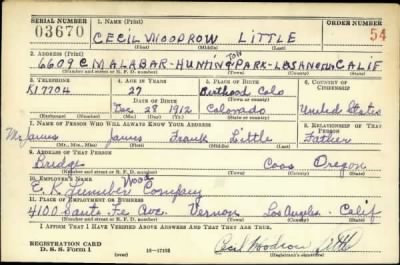 SERIAL NUMBER 1. NAME (Print) ORDER NUMBER
03670 CECIL WOODROW LITTLE 54
(First) (Middle) (Last)
2. ADDRESS (Print)
6609 C MALABAR-HUNTINGTON PARK-LOSANGELES CALIF
(Number and street or R. F. D. number) (Town) (County) (State)
3. TELEPHONE 4. AGE IN YEARS 5. PLACE OF BIRTH 6. COUNTRY OF CITIZENSHIP
27 Berthoud Colo
DATE OF BIRTH (Town or county)
Dec 28 1912 Colorado United States
(Exchange) (No.) (Mo.) (Day) (Yr.) (State or country)
7. NAME OF PERSON WHO WILL ALWAYS KNOW YOUR ADDRESS 8. RELATIONSHIP OF THAT PERSON
Mr James James Frank Little Father
(Mr., Mrs., Miss) (First) (Middle) (Last)
9. ADDRESS OF THAT PERSON
Bridge Coos Oregon
(Number and street or R. F. D. number) (Town) (County) (State)
10. EMPLOYER'S NAME
E. K. Wood Lumber Company
11. PLACE OF EMPLOYMENT OR BUSINESS
4100 Santa Fe Ave. Vernon Los Angeles Calif
(Number and street or R. F. D. number) (Town) (County) (State)
I AFFIRM THAT I HAVE VERIFIED ABOVE ANSWERS AND THAT THEY ARE TRUE.
REGISTRATION CARD
D. S. S. Form 1 16-17105 Cecil Woodrow Little
(over) (Registrant's signature)